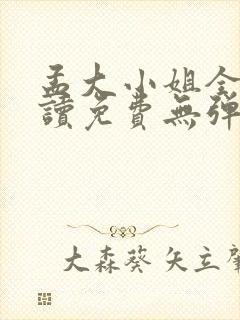 孟大小姐全
讀免費無彈
大森葵 矢立肇